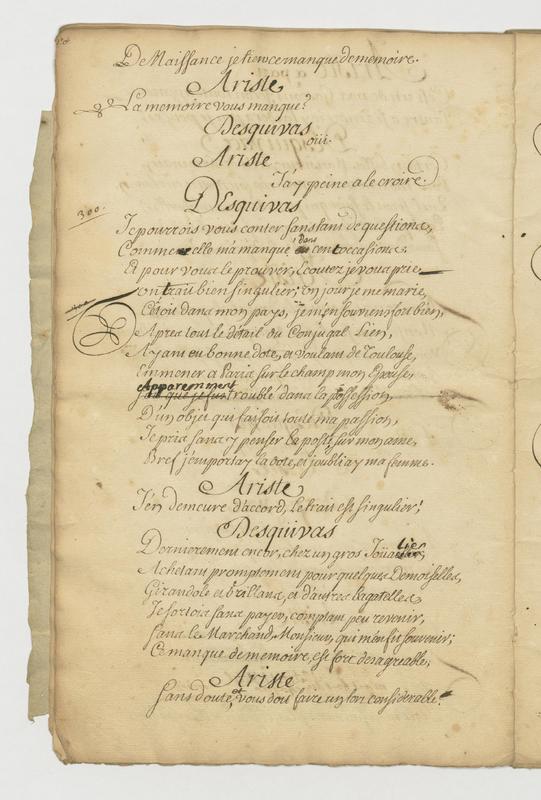 De Naissance je tiens ce manque de memoire.
Ariste
La memoire vous manque?
Desquivas
oüi.
Ariste
J'ay peine a le croire.
DEsquivas
300.
Je pourrois vous conter sans tant de questions,
Comme elle m'a manqué dans cent occasions,
Et pour vous le prouver, Ecoutez je vous prie
un trait bien singulier; un jour je me marie,
C'étoit dans mon pays, je m'en souviens fort bien,
Apres tout le détail du Conjugal Lien,
Ayant eu bonne dote, et voulant de Toulouse,
Emmener a Paris sur le champ mon Epouse,
Apparemment
troublé dans la possession,
D'un objet qui faisoit toute ma passion,
Je pris sans y penser la poste, sur mon ame,
Bref j'emportay la dote, et j'oubliay ma femme.
Ariste
J'en demeure d'accord, le trait est singulier;
Desquivas
Dernierement encor, chez un gros Joüaillier,
Achetant promptement pour quelques Demoiselles,
Girandole et brillans, et d'autres bagatelles,
Je sortois sans payer, comptant peu revenir,
Sans le Marchand, Monsieur, qui m'en fit souvenir;
Ce manque de memoire, est fort desagreable,
Ariste
Sans doute, et vous doit faire un tort considerable.